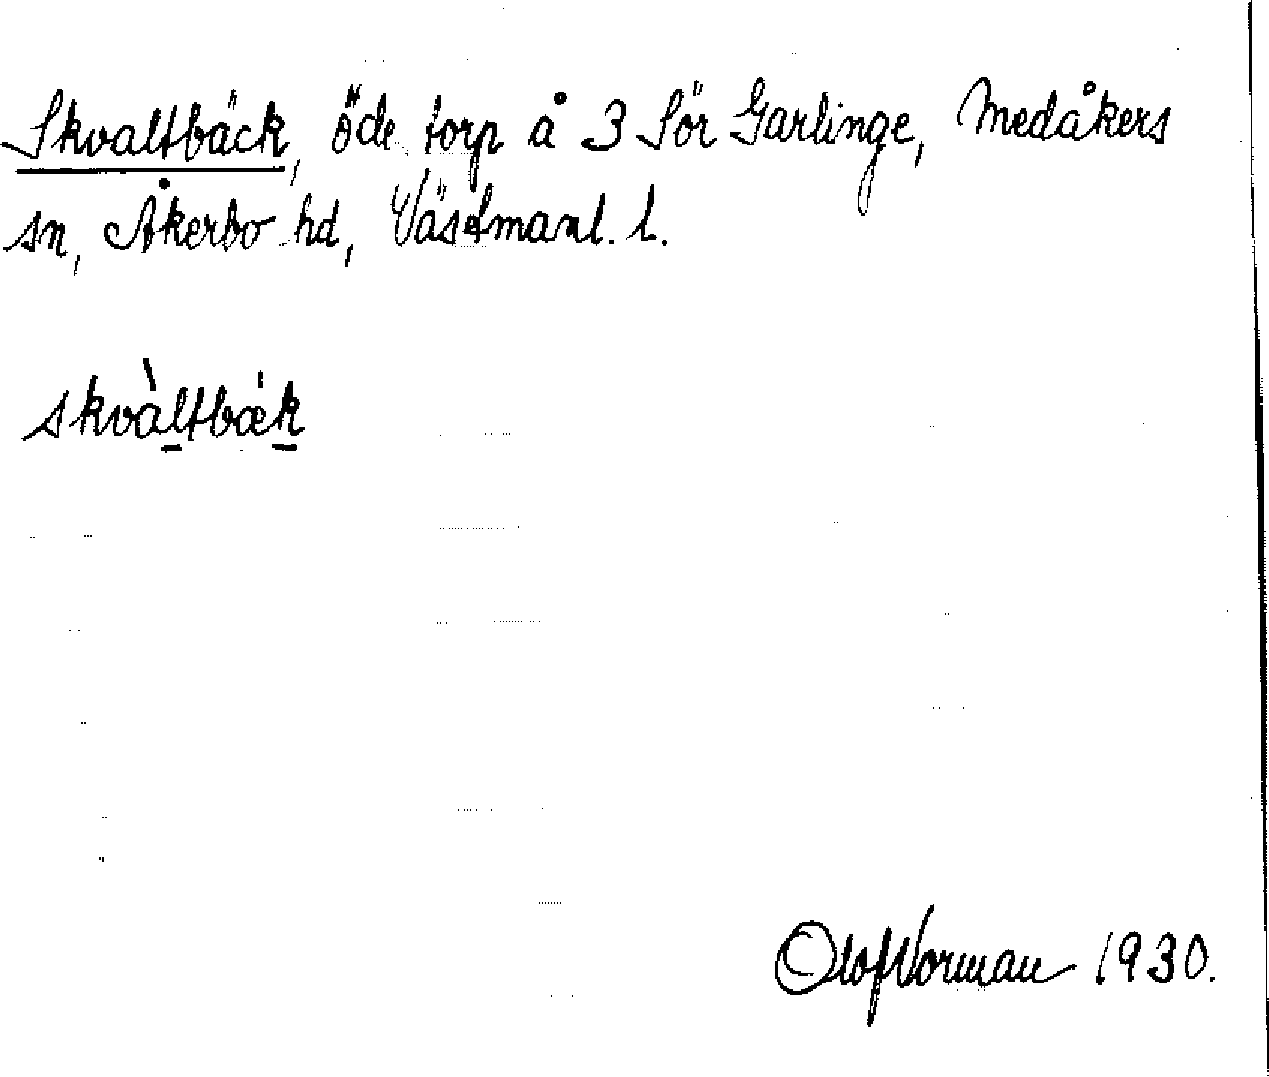 Skvaltbäck, öde torp å 3 Sör Garlinge, Medåkers
sn, Åkerbo hd, Västmanl. l.
skvàltbæ̍k
Olof Norman 1930.